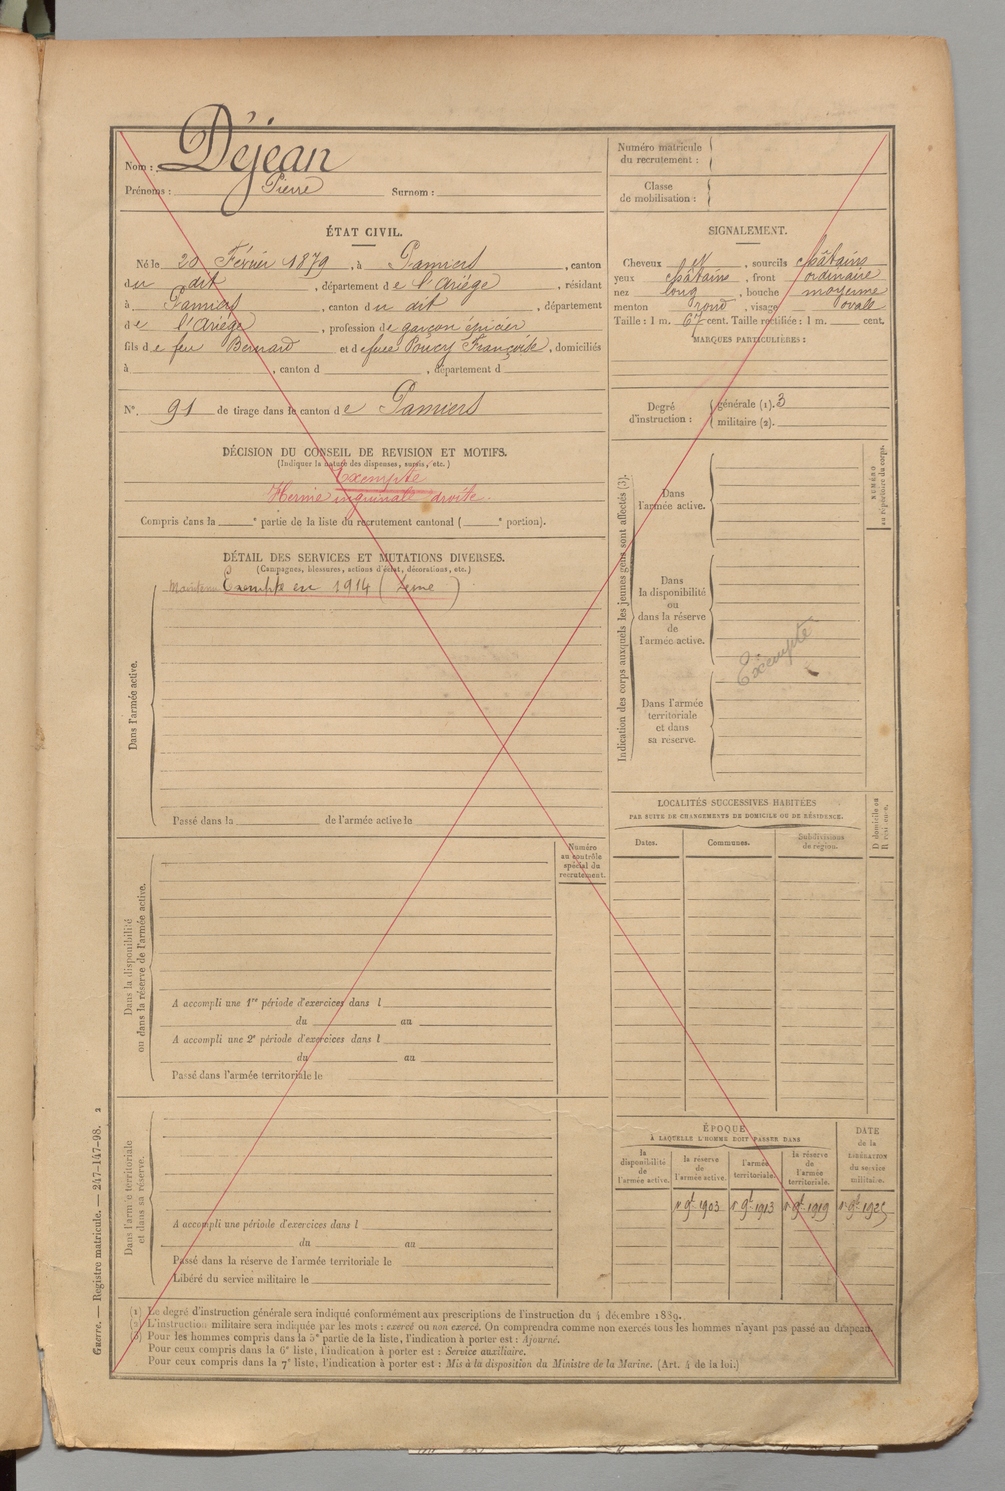 Nom : Déjean
Prénoms : Pierre Surnom :
ÉTAT CIVIL.
Né le 20 Février 1879, à Pamiers, canton
du dit, département de l'Ariège, résidant
à Pamiers, canton du dit, département
de l'Ariège, profession de garçon épicier
fils de feu Bernard et de feue Poucy Françoise, domiciliés
à , canton d , département d
N°. 91 de tirage dans le canton de Pamiers
DÉCISION DU CONSEIL DE REVISION ET MOTIFS.
(Indiquer la nature des dispenses, sursis, etc.)
Exempté
Hernie inguinale droite.
Compris dans la e partie de la liste du recrutement cantonal ( e portion).
DÉTAIL DES SERVICES ET MUTATIONS DIVERSES.
(Campagnes, blessures, actions d'éclat, décorations, etc.)
Exempté en 1914 ( )
Dans l'armée active.
Passé dans la de l'armée active le
Numéro
au contrôle
spécial du
recrutement.
Dans la disponibilité
ou dans la réserve de l'armée active.
A accompli une 1re période d'exercices dans l
du au
A accompli une 2e période d'exercices dans l
du au
Passé dans l'armée territoriale le
Dans l'armée territoriale
et dans sa réserve.
A accompli une période d'exercices dans l
du au
Passé dans la réserve de l'armée territoriale le
Libéré du service militaire le
Numéro matricule
du recrutement :
Classe
de mobilisation :
SIGNALEMENT.
Cheveux et, sourcils châtains
yeux châtains, front ordinaire
nez long, bouche moyenne
menton rond, visage ovale
Taille : 1 m. 67 cent. Taille rectifiée : 1 m. cent.
MARQUES PARTICULIÈRES :
Degré
d'instruction :
générale (1). 3
militaire (2).
Indication des corps auxquels les jeunes gens sont affectés (3).
Dans
l'armée active.
NUMÉRO
au répertoire du corps.
Dans
la disponibilité
ou
dans la réserve
de
l'armée active.
Exempté
Dans l'armée
territoriale
et dans
sa réserve.
LOCALITÉS SUCCESSIVES HABITÉES
PAR SUITE DE CHANGEMENTS DE DOMICILE OU DE RÉSIDENCE.
Dates. Communes. Subdivisions
de région.
D domicile ou
R résidence.
ÉPOQUE
À LAQUELLE L'HOMME DOIT PASSER DANS
DATE
de la
LIBÉRATION
du service
militaire.
la
disponibilité
de
l'armée active.
la réserve
de
l'armée active.
l'armée
territoriale.
la réserve
de
l'armée
territoriale.
1r 9bre 1903 1r 9bre 1913 1r 9bre 1919 1r 9bre 1925
(1) Le degré d'instruction générale sera indiqué conformément aux prescriptions de l'instruction du 4 décembre 1889.
(2) L'instruction militaire sera indiquée par les mots : exercé ou non exercé. On comprendra comme non exercés tous les hommes n'ayant pas passé au drapeau.
(3) Pour les hommes compris dans la 5e partie de la liste, l'indication à porter est : Ajourné.
Pour ceux compris dans la 6e liste, l'indication à porter est : Service auxiliaire.
Pour ceux compris dans la 7e liste, l'indication à porter est : Mis à la disposition du Ministre de la Marine. (Art. 4 de la loi.)
Guerre. — Registre matricule. — 247-147-98. 2